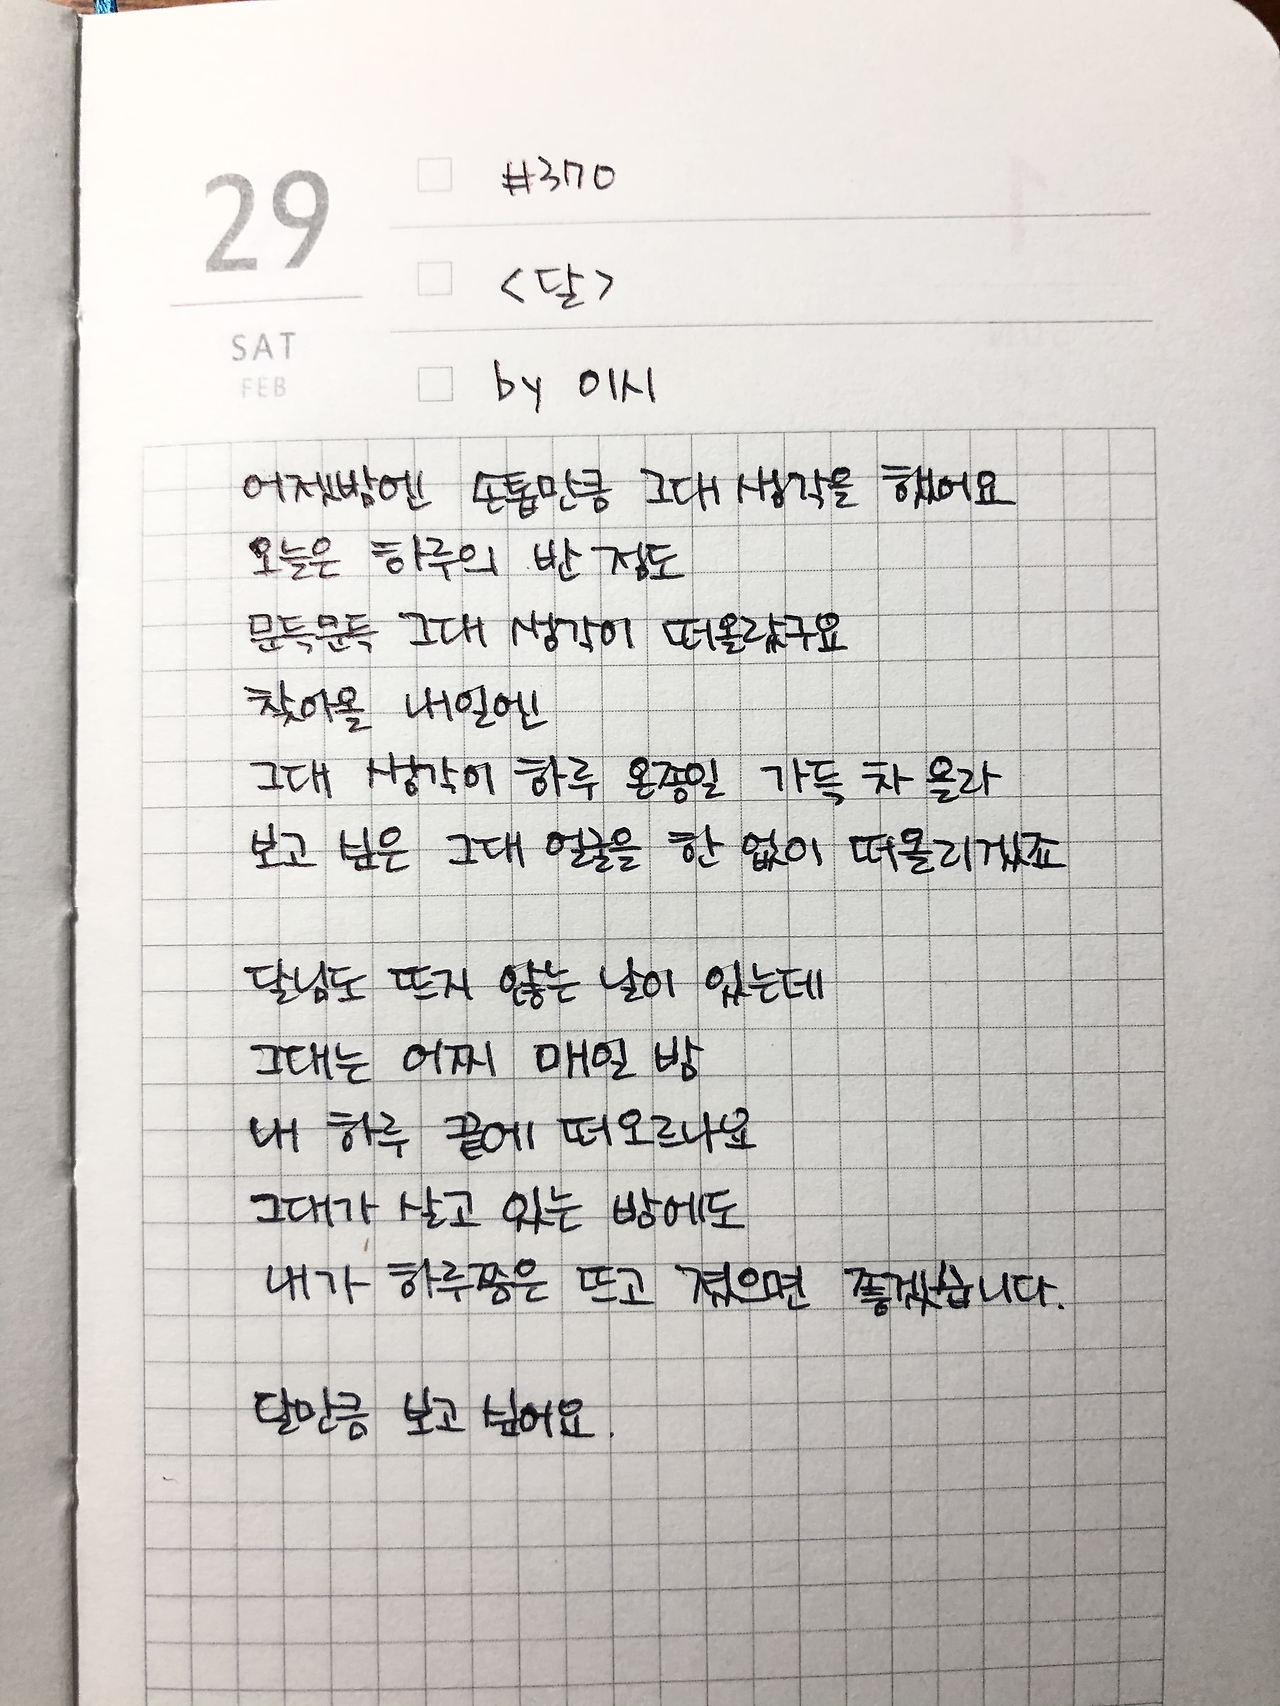 29
SAT
FEB
#370
<달>
by 이시
어젯밤엔 손톱만큼 그대 생각을 했어요
오늘은 하루의 반 정도
문득문득 그대 생각이 떠올랐구요
찾아올 내일엔
그대 생각이 하루 온종일 가득 차 올라
보고 싶은 그대 얼굴을 한 없이 떠올리겠죠
달님도 뜨지 않는 날이 있는데
그대는 어찌 매일 밤
내 하루 끝에 떠오르나요
그대가 살고 있는 밤에도
내가 하루쯤은 뜨고 졌으면 좋겠습니다.
달만큼 보고 싶어요.